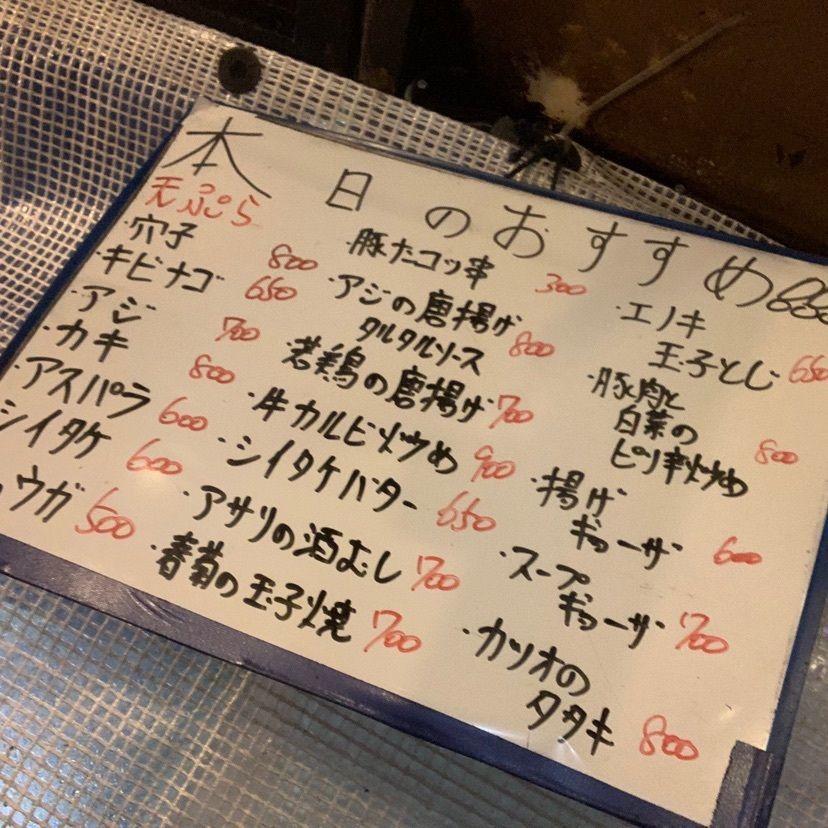 本日のおすすめ
天ぷら
・穴子 800
キビナゴ 650
・アジ 700
・カキ 800
・アスパラ 600
シイタケ 600
ョウガ 500
・豚たコッ串 300
・アジの唐揚げ
タルタルソース 800
・若鶏の唐揚げ 700
・牛カルビ炒め 900
・シイタケバター 650
・アサリの酒むし 700
・春菊の玉子焼 700
650
・エノキ
玉子とじ 650
・豚肉と
白菜の
ピリ辛炒め 800
・揚げ
ギョーザ 600
・スープ
ギョーザ 700
・カツオの
タタキ 800